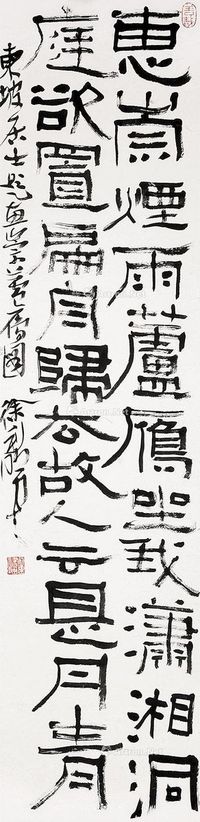 惠崇煙雨蘆鴈坐我瀟湘洞
庭欲置扁舟歸去故人云是丹青
東坡居士題惠崇蘆雁圖 徐利明